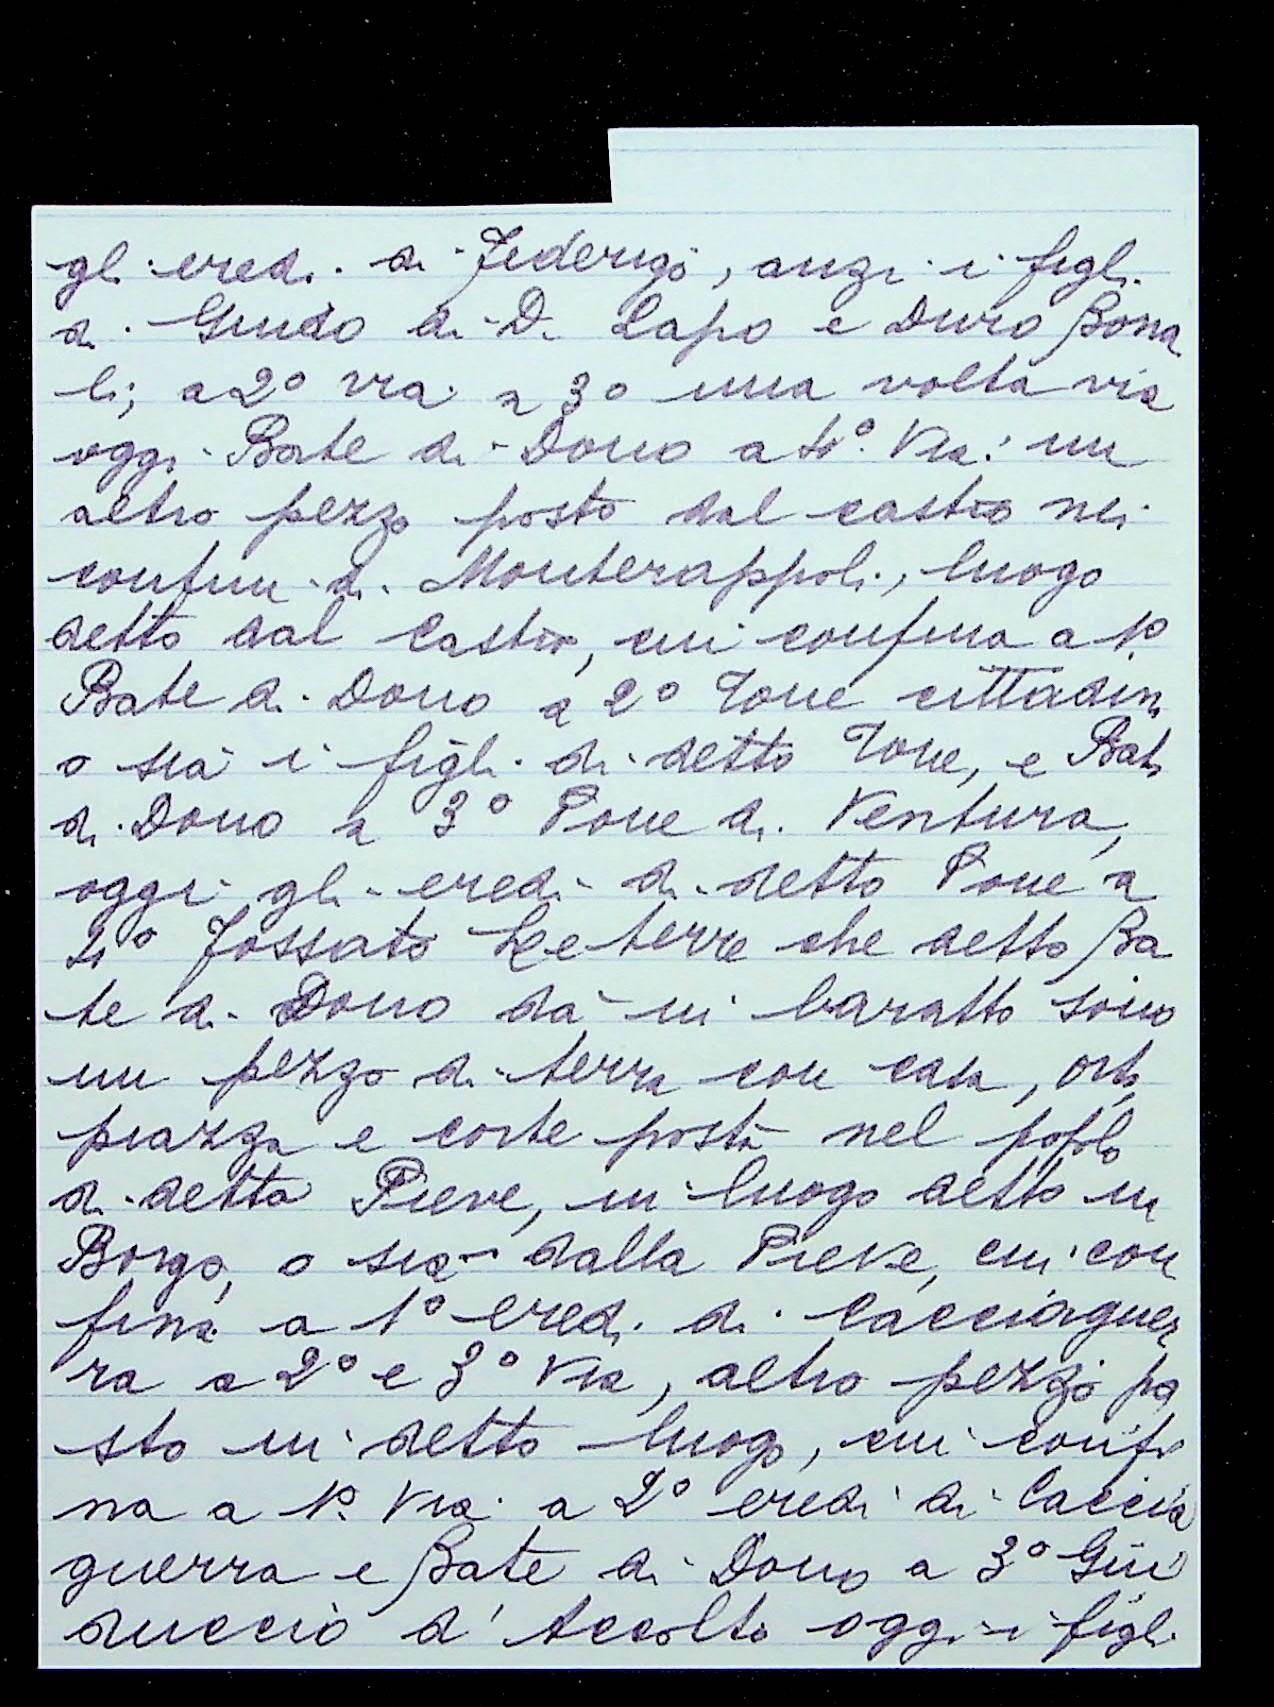 gli eredi di Federigo, anzi i figli
di Guido di D. Lapo e Duro Bona
li; a 2° via a 3° una volta via
oggi Bate di Dono a 4° Via: un
altro pezzo posto dal castro nei
confini di Monterappoli, luogo
detto dal Castro, cui confina a 1°
Bate di Dono a 2° Tone cittadini
o sia i figli di detto Tone, e Bate
di Dono a 3° Pone di Ventura,
oggi gli eredi di detto Pone a
4° Fossato Le terre che detto Ba
te di Dono dà in baratto sono
un pezzo di terra con casa, orto,
piazza e corte posta nel popolo
di detta Pieve, in luogo detto in
Borgo, o sia dalla Pieve, cui con
fina a 1° eredi di Cacciaguer
ra a 2° e 3° Via, altro pezzo po
sto in detto luogo, cui confi
na a 1° Via a 2° eredi di Caccia
guerra e Bate di Dono a 3° Gui
duccio d'Accolto oggi i figli